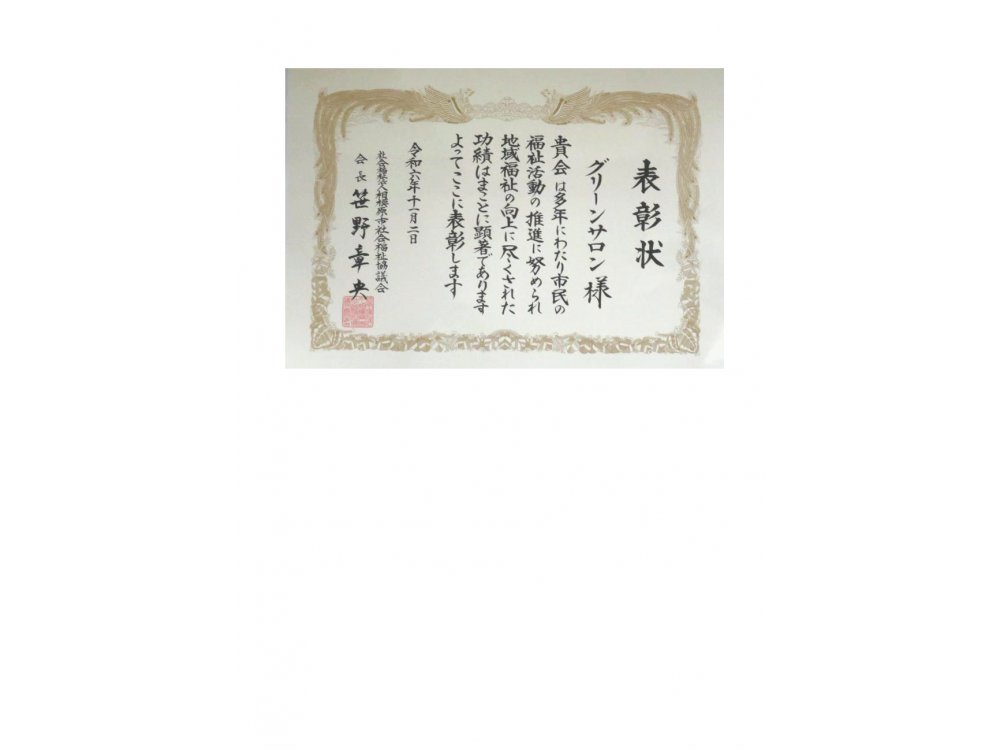 表彰状
グリーンサロン様
貴会は多年にわたり市民の
福祉活動の推進に努められ
地域福祉の向上に尽くされた
功績はまことに顕著であります
よってここに表彰します
令和六年十一月二日
社会福祉法人相模原市社会福祉協議会
会長 笹野章央